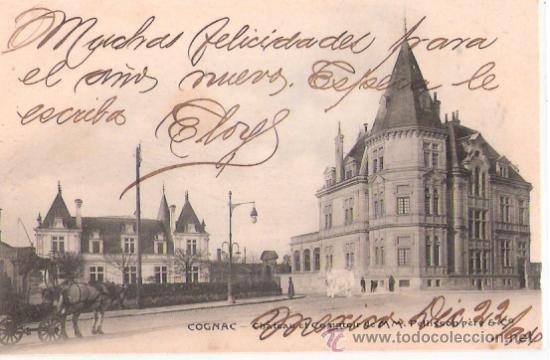 Muchas felicidades para
el años nuevo. Espera le
escriba Eloy
COGNAC - Château et Comptoir de M.M. Pellisson père & Co
Mexico Dic. 22/
todocoleccion.net